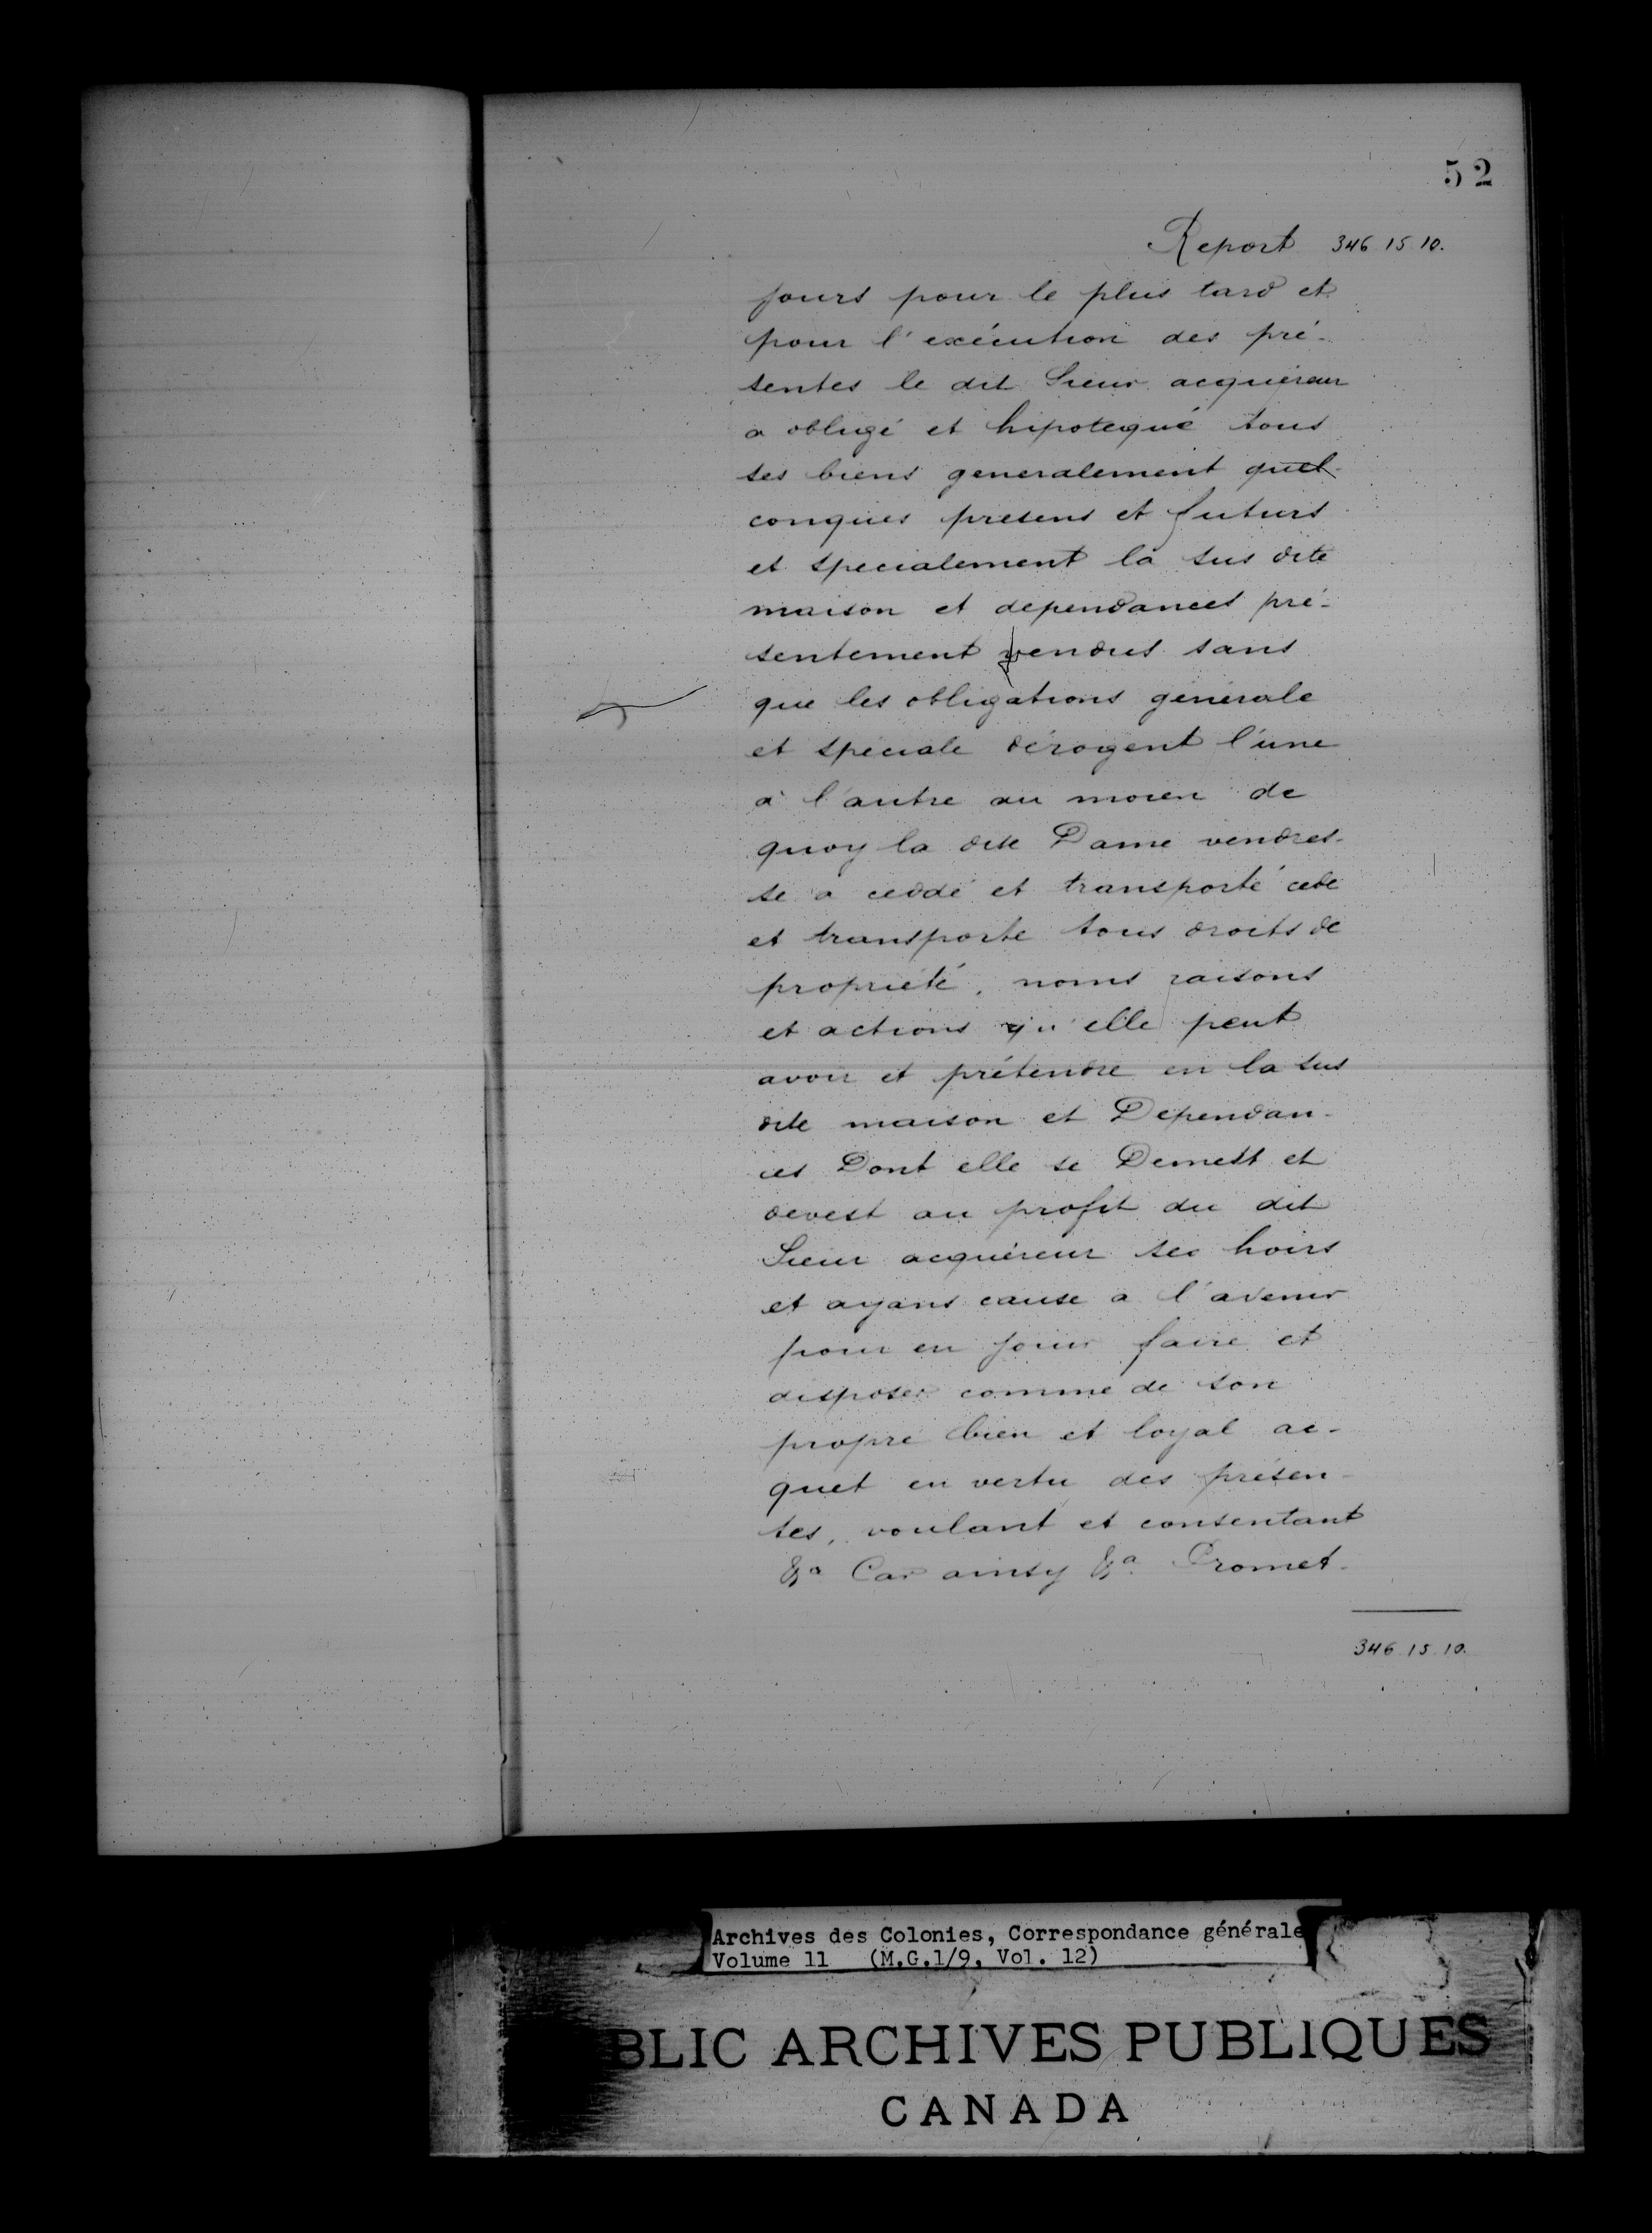 52
Report 346 15 10.
jours pour le plus tard et
pour l'exécution des pré-
sentes le dit Sieur acquereur
a obligé et hipotequé tous
ses biens generalement quel-
conques presens et futurs
et specialement la sus dite
maison et dependances pré-
sentement vendus sans
que les obligations générale
et spéciale dérogent l'une
à l'autre au moien de
quoy la dite Dame vendres-
se a ceddé et transporté cede
et transporte tous droits de
propriété, noms raisons
et actions qu'elle peut
avoir et prétendre en la sus
dite maison et Dependan-
ces Dont elle se Demest et
devest au profit du dit
Sieur acquéreur ses hoirs
et ayans cause a l'avenir
pour en jouir faire et
disposer comme de son
propre bien et loyal ac-
quet en vertu des présen-
tes, voulant et consentant
&a Car ainsy &a. Promet-
346 15 10.
Archives des Colonies, Correspondance générale
Volume 11 (M.G.1/9, Vol. 12)
BLIC ARCHIVES PUBLIQUES
CANADA